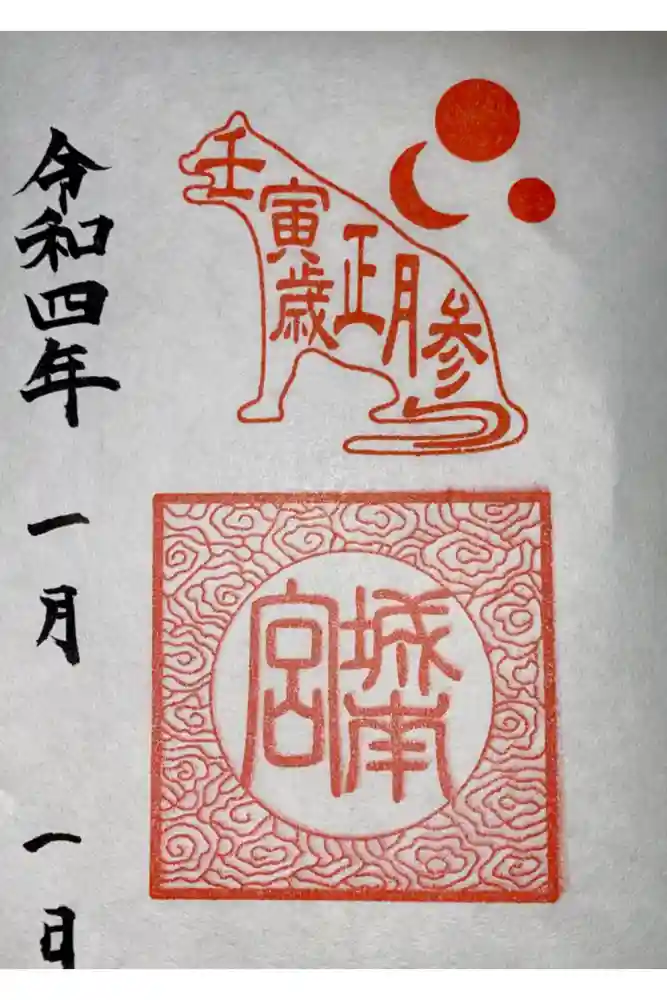 壬寅歳正月参
城南宮
令和四年一月一日